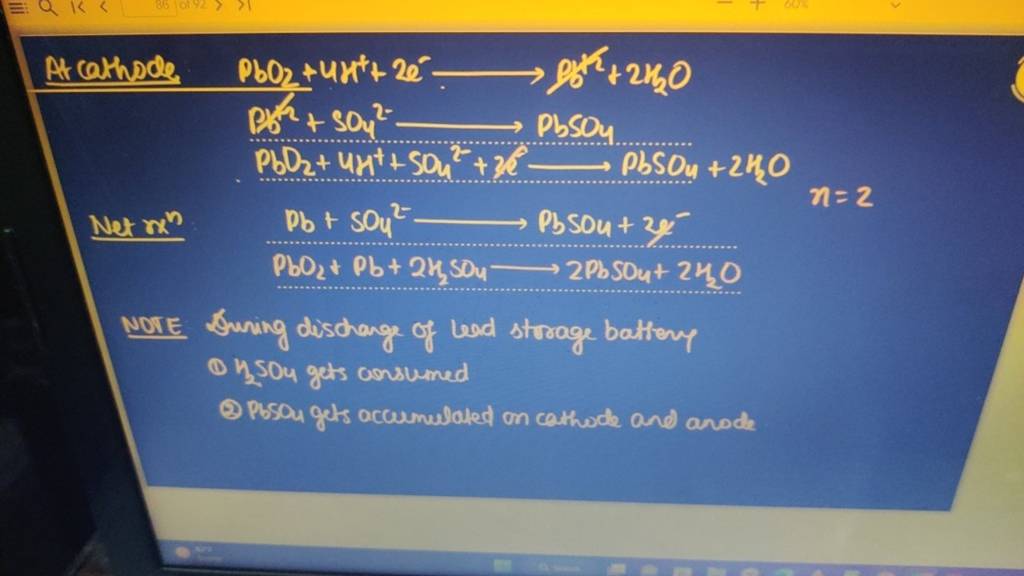 86 of 92 60%
At cathode PbO2 + 4H+ + 2e- → Pb+2 + 2H2O
Pb+2 + SO4 2- → PbSO4
PbO2 + 4H+ + SO4 2- + 2e → PbSO4 + 2H2O
n = 2
Net rxn Pb + SO4 2- → PbSO4 + 2e-
PbO2 + Pb + 2H2SO4 → 2PbSO4 + 2H2O
NOTE During discharge of lead storage battery
① H2SO4 gets consumed
② PbSO4 gets accumulated on cathode and anode
Search